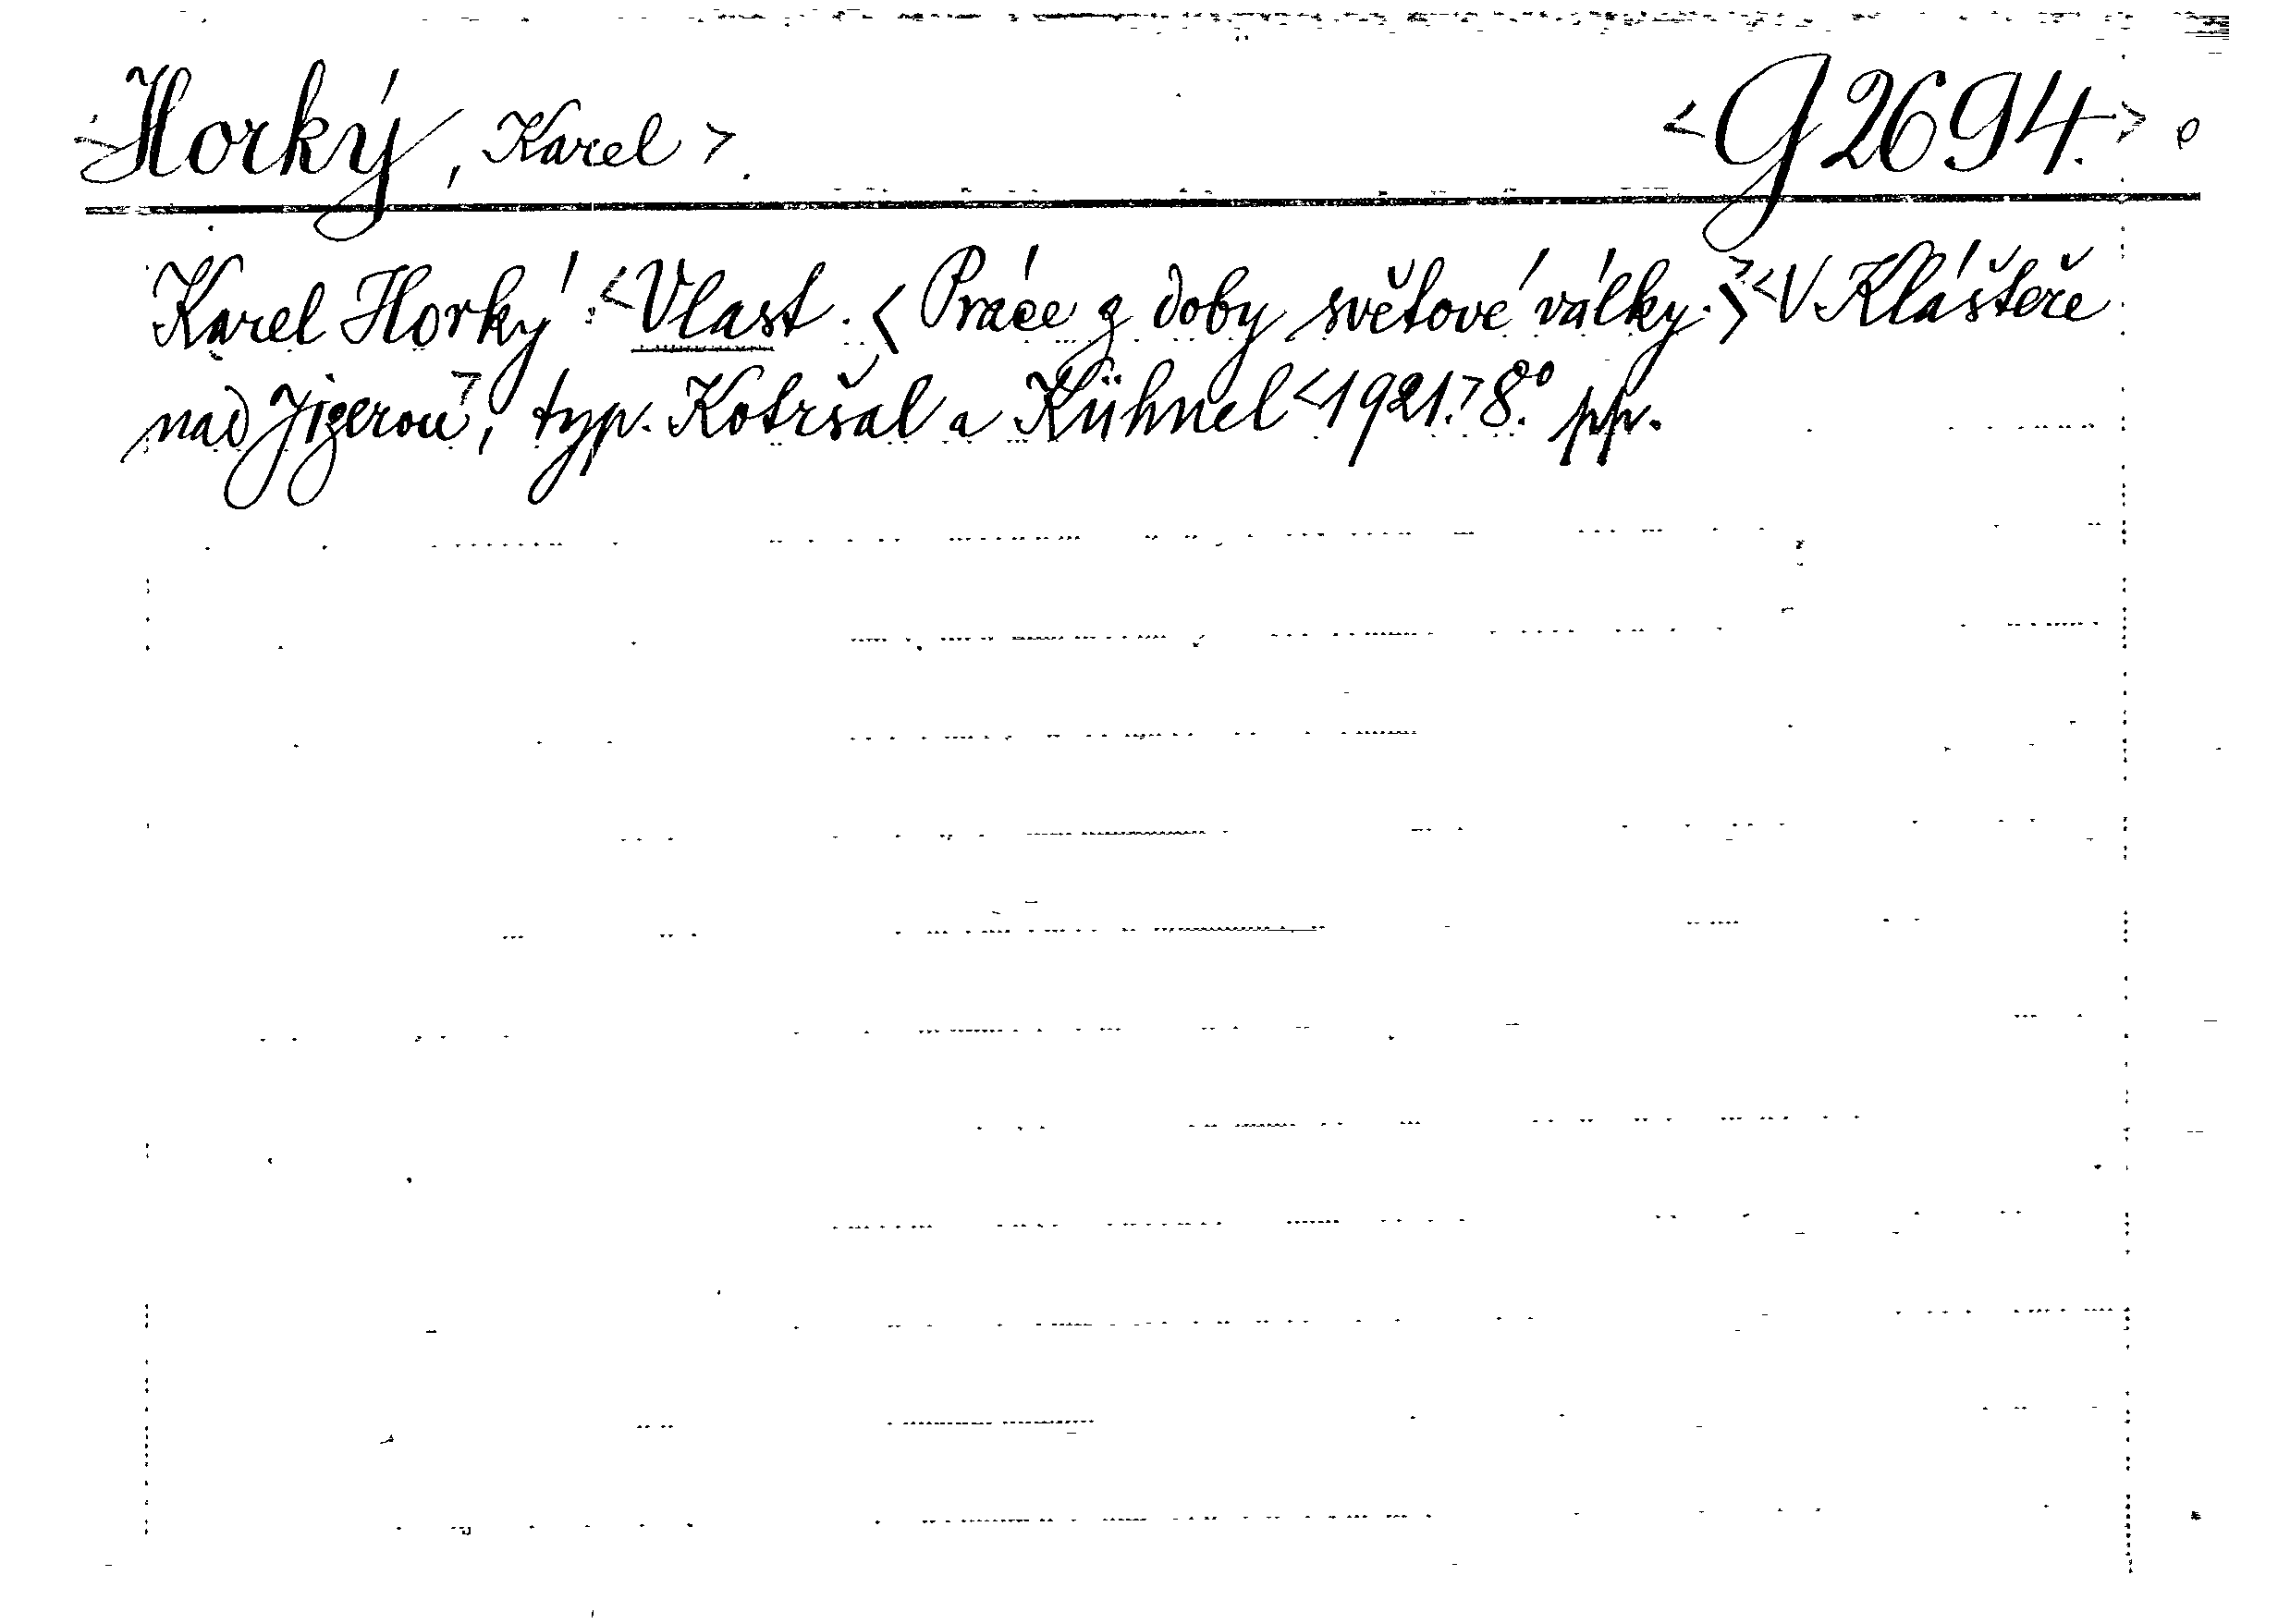 <Horký, Karel>. <G 2694.>
Karel Horký: <Vlast. <Práce z doby světové války.>> <V Klášteře
nad Jizerou>, typ. Kotršal a Kühnel <1921.> 8.° pp.